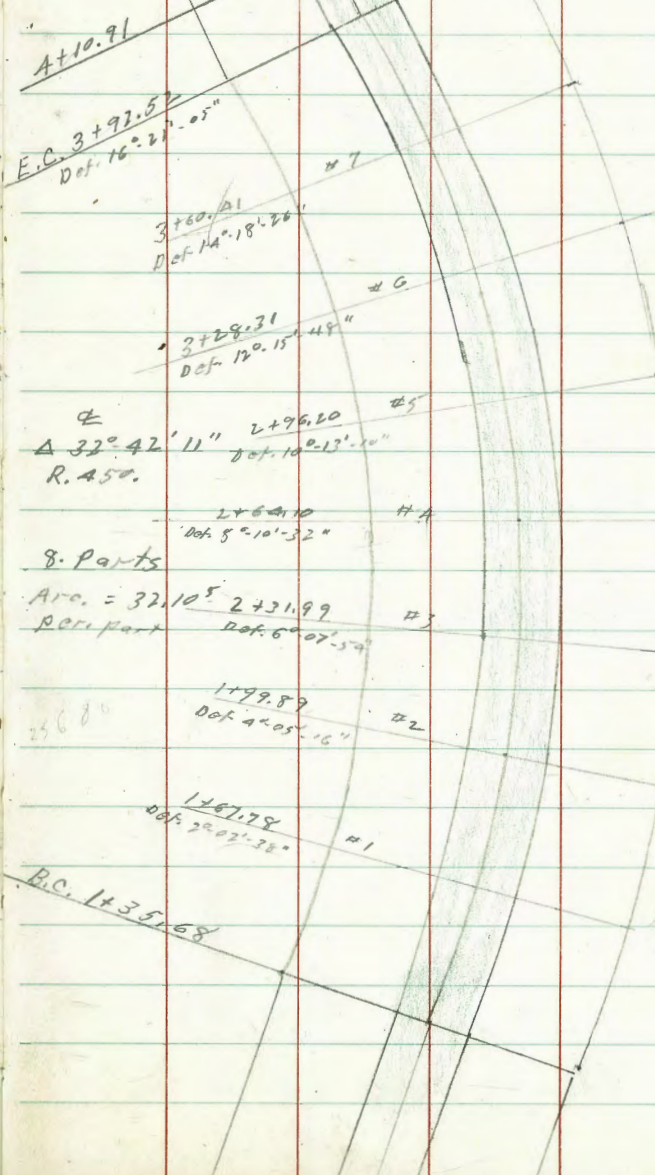 4+10.91
E.C. 3+92.52
Def. 16°-21'-05"
#7
3+60.41
Def 14°-18'-26"
#6
3+28.31
Def. 12°-15'-48"
#5
2+96.20
Def. 10°-13'-10"
℄
Δ 32°-42'11"
R. 450.
#4
2+64.10
Def. 8°-10'-32"
8. Parts
Arc. = 32.10⁵
per. part
#3
2+31.99
Def. 6°-07'-54"
#2
1+99.89
Def. 4°-05'-16"
#1
1+67.78
Def. 2°-02'-38"
B.C. 1+35.68